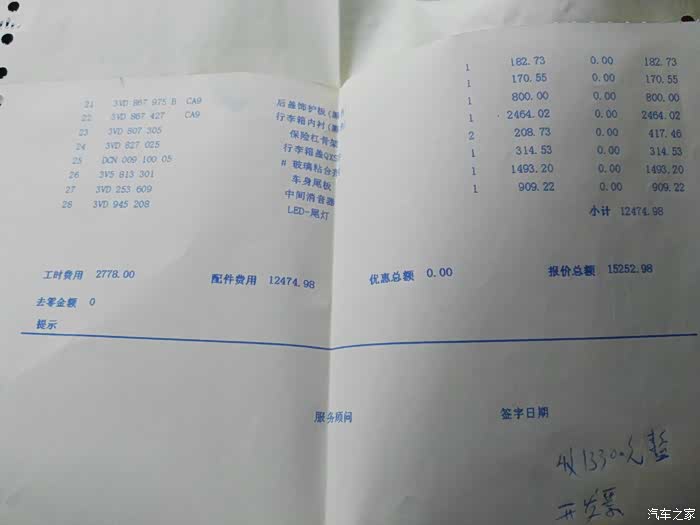 21 3VD 867 975 B CA9 后盖饰护板 1 182.73 0.00 182.73
22 3VD 867 427 CA9 行李箱内衬 1 170.55 0.00 170.55
23 3VD 807 305 保险杠骨架 1 800.00 0.00 800.00
24 3VD 827 025 行李箱盖 1 2464.02 0.00 2464.02
25 DCN 009 100 05 # 玻璃粘合剂 2 208.73 0.00 417.46
26 3V5 813 301 车身尾板 1 314.53 0.00 314.53
27 3VD 253 609 中间消音器 1 1493.20 0.00 1493.20
28 3VD 945 208 LED-尾灯 1 909.22 0.00 909.22
小计 12474.98
工时费用 2778.00 配件费用 12474.98 优惠总额 0.00 报价总额 15252.98
去零金额 0
提示
服务顾问 签字日期
收13300元整
开发票
汽车之家